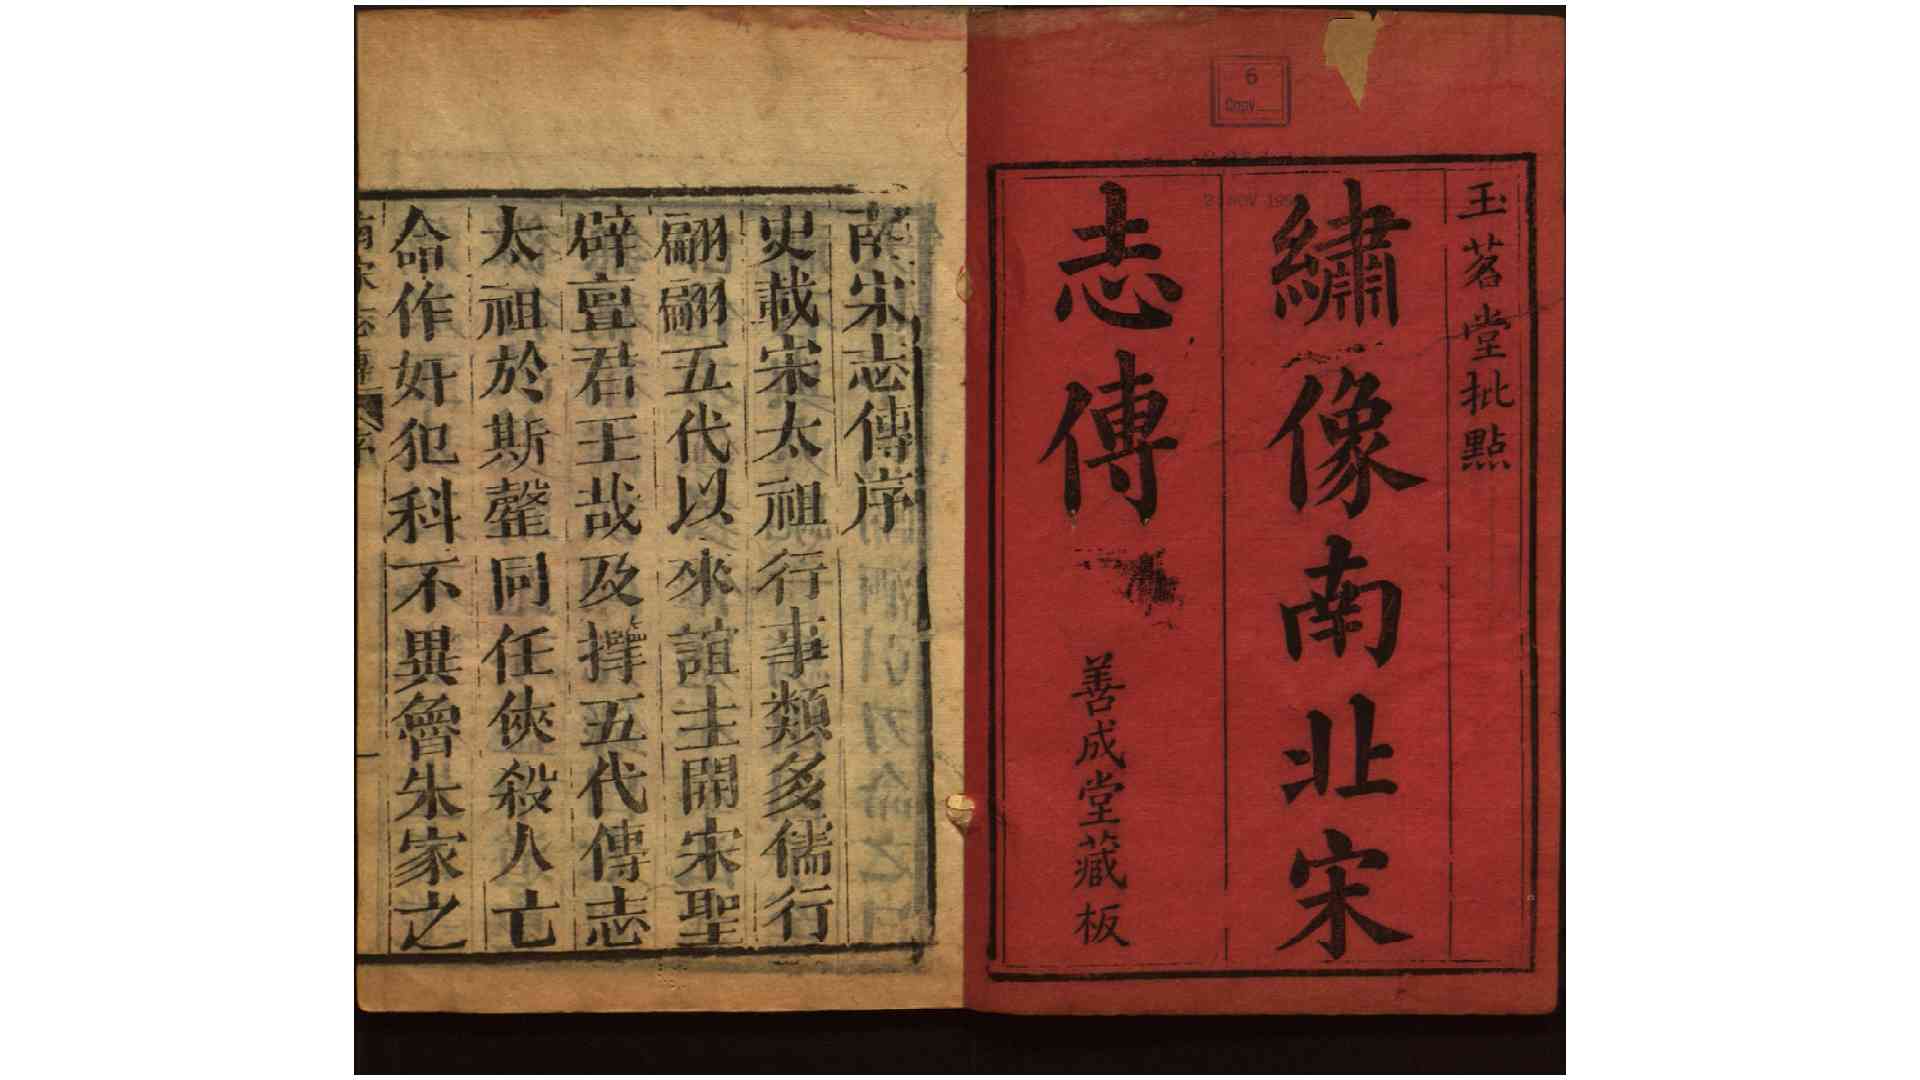 玉茗堂批點
繡像南北宋
志傳
善成堂藏板
6
Copy
南宋志傳序
史載宋太祖行事類多儒行
翩翩五代以來誼主開宋聖
辟亶君王哉及攷五代傳志
太祖於斯蓋同任俠殺人亡
命作奸犯科不異魯朱家之